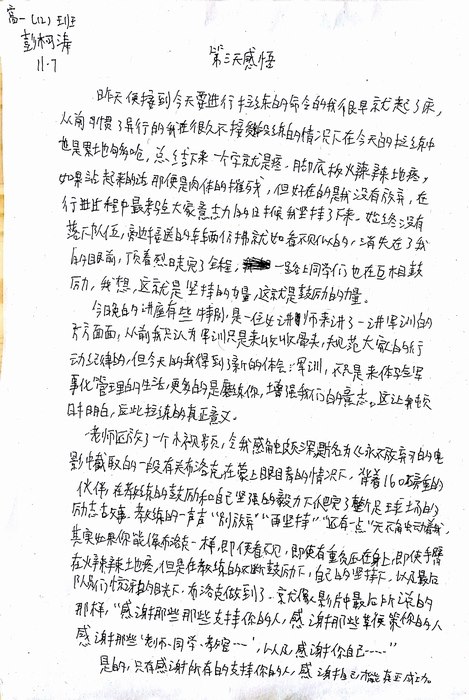 高一(12)班
彭柯涛
11.7
第三天感悟
昨天便接到今天要进行拉练的命令的我很早就起了床,
从前习惯了骑行的我在很久不接触拉练的情况下在今天的拉练中
也是累地够呛,总结下来一个字就是疼。脚底板火辣辣地疼,
如果站起来的话那便是肉体的摧残,但好在的是我没有放弃,在
行进过程中最考验大家意志力的时候我坚持了下来。始终没有
落下队伍,旁边接送的车辆仿佛就如看不见似的,消失在了我
的眼前,顶着烈日走完了全程,一路上同学们也在互相鼓
励,我想,这就是坚持的力量,这就是鼓励的力量。
今日晚的讲座有些特别,是一位女讲师来讲了一讲军训的
方方面面,从前我只认为军训只是来收收骨头,规范大家的行
动纪律的,但今天的我得到了新的体会:军训,不只是来体验军
事化管理的生活,更多的是磨练你,增强我们的意志。这让我顿
时明白,在此拉练的真正意义。
老师还放了一个小视频,令我感触颇深,题名为《永不放弃》的电
影中截取的一段有关布洛克在蒙上眼目者的情况下,背着160磅重的
伙伴在教练的鼓励和自己坚强的毅力下爬完了整个足球场的
励志故事。教练的一声声“别放弃”“再坚持”“还有一点”无不触动着我,
其实如果你能像布洛克一样,即使看不见,即使有重负在身上,即使手臂
在火辣辣地疼,但是在教练的不断鼓励下,自己的坚持下,以及最后
队员们惊讶的目光下,布洛克做到了。就像影片中最后所说的
那样,“感谢那些那些支持你的人,感谢那些鞭策你的人
感谢那些“老师、同学、教官……”,以及,感谢你自己……”
是的,只有感谢所有的支持你的人,感谢自己才能真正成功。